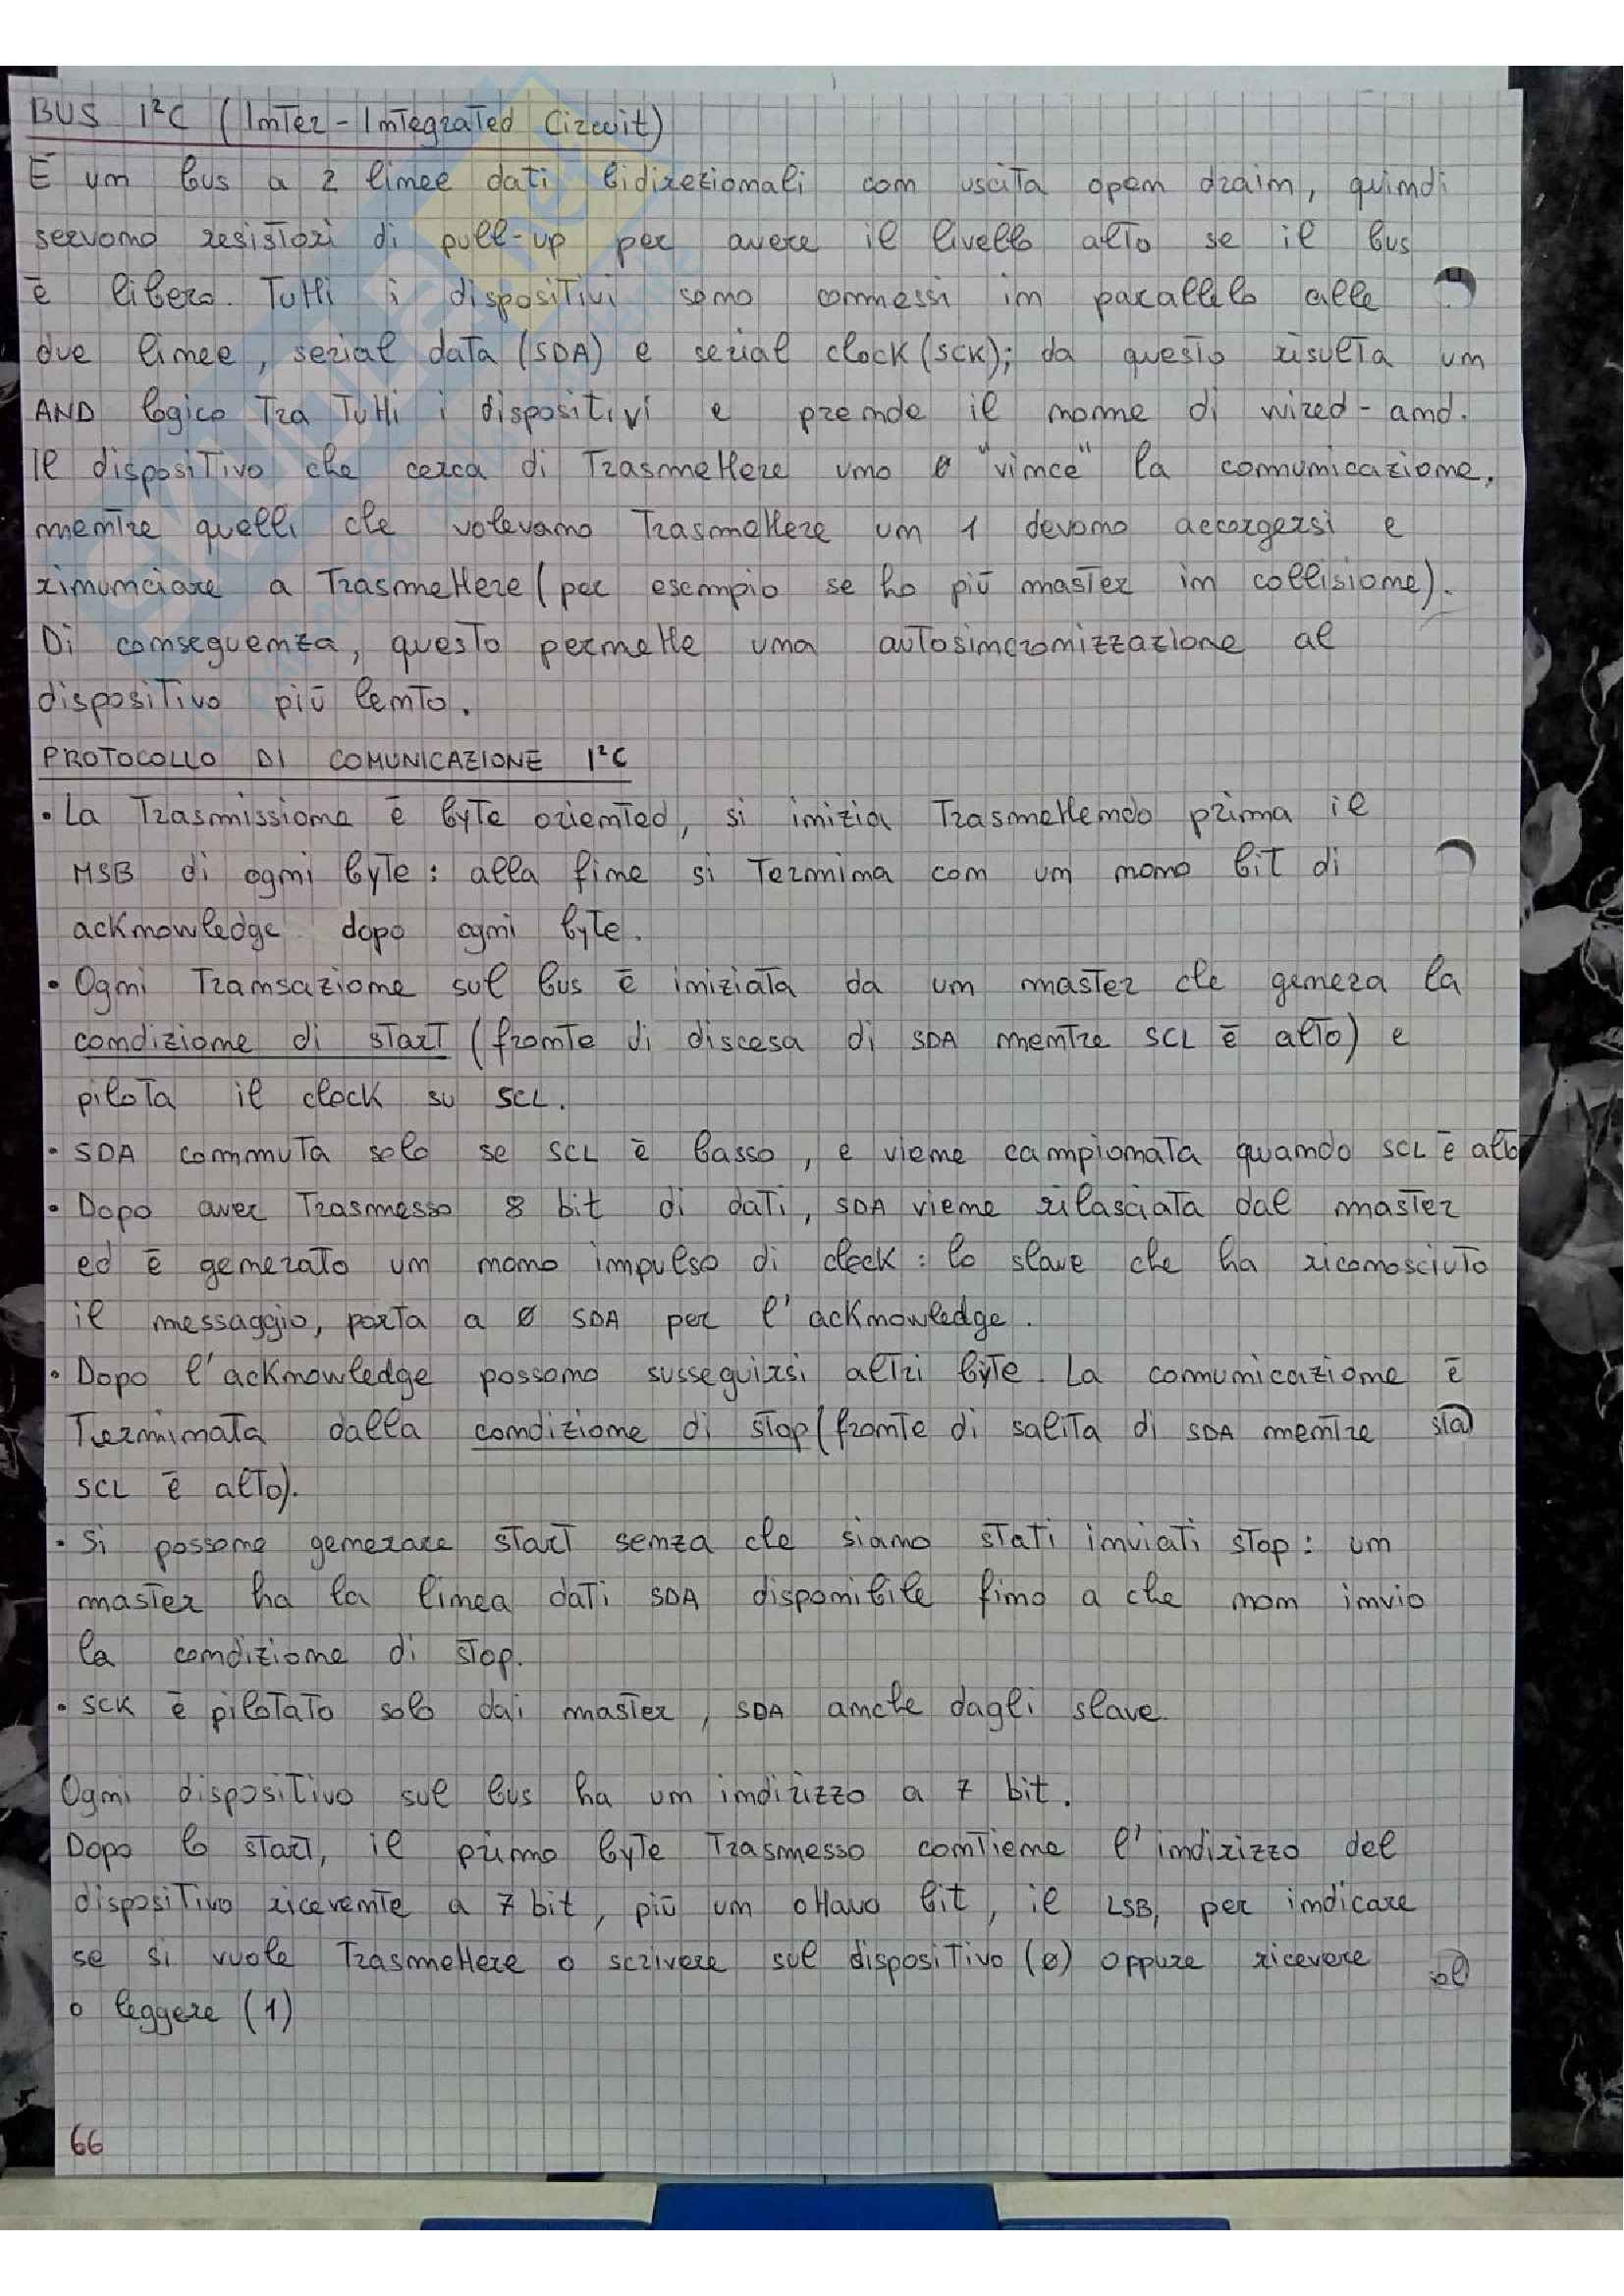 BUS I²C (Inter-Integrated Circuit)
È un bus a 2 linee dati bidirezionali con uscita open drain, quindi
servono resistori di pull-up per avere il livello alto se il bus
è libero. Tutti i dispositivi sono connessi in parallelo alle
due linee, serial data (SDA) e serial clock (SCK); da questo risulta un
AND logico tra tutti i dispositivi e prende il nome di wired-and.
Il dispositivo che cerca di trasmettere uno 0 "vince" la comunicazione,
mentre quelli che volevano trasmettere un 1 devono accorgersi e
rinunciare a trasmettere (per esempio se ho più master in collisione).
Di conseguenza, questo permette una autosincronizzazione al
dispositivo più lento.
PROTOCOLLO DI COMUNICAZIONE I²C
• La trasmissione è byte oriented, si inizia trasmettendo prima il
MSB di ogni byte: alla fine si termina con un nono bit di
acknowledge dopo ogni byte.
• Ogni transazione sul bus è iniziata da un master che genera la
condizione di start (fronte di discesa di SDA mentre SCL è alto) e
pilota il clock su SCL.
• SDA commuta solo se SCL è basso, e viene campionata quando SCL è alto
• Dopo aver trasmesso 8 bit di dati, SDA viene rilasciata dal master
ed è generato un nono impulso di clock: lo slave che ha riconosciuto
il messaggio, porta a 0 SDA per l'acknowledge.
• Dopo l'acknowledge possono susseguirsi altri byte. La comunicazione è
terminata dalla condizione di stop (fronte di salita di SDA mentre
SCL è alto).
• Si possono generare start senza che siano stati inviati stop: un
master ha la linea dati SDA disponibile fino a che non invio
la condizione di stop.
• SCK è pilotato solo dai master, SDA anche dagli slave.
Ogni dispositivo sul bus ha un indirizzo a 7 bit.
Dopo lo start, il primo byte trasmesso contiene l'indirizzo del
dispositivo ricevente a 7 bit, più un ottavo bit, il LSB, per indicare
se si vuole trasmettere o scrivere sul dispositivo (0) oppure ricevere
o leggere (1)
66